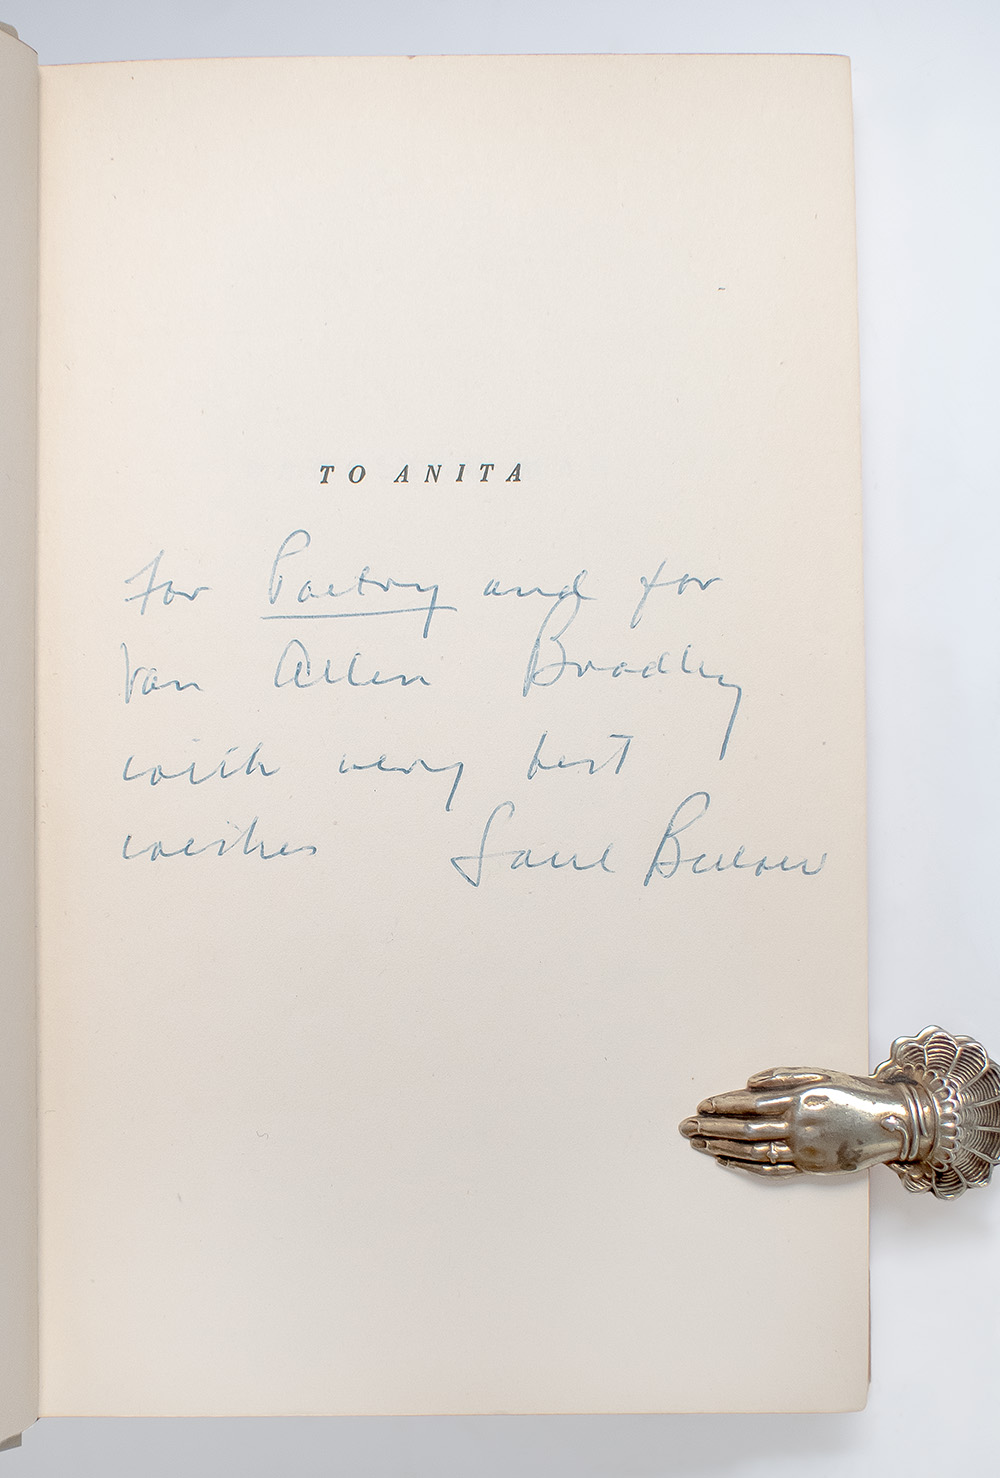 TO ANITA
For Poetry and for
Van Allen Bradley
with very best
wishes Saul Bellow